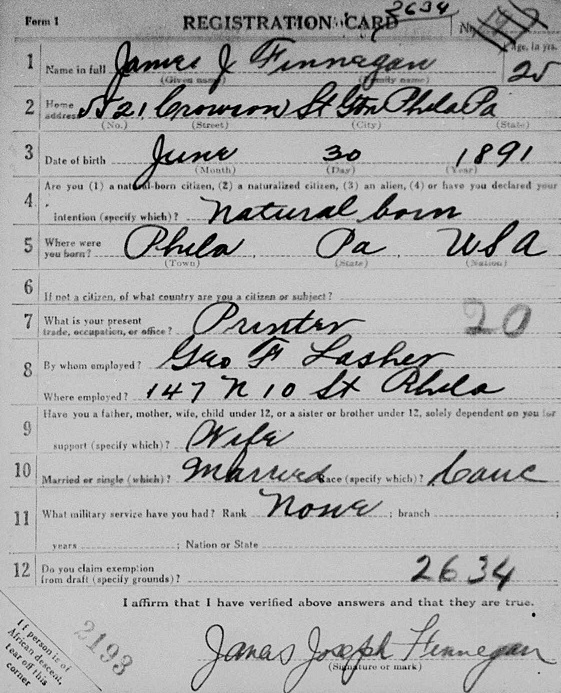 2634
Form 1 REGISTRATION CARD No.
1 Name in full James J Finnegan Age, in yrs. 25
(Given name) (Family name)
2 Home address 5521 Crowson St Gtn Phila Pa
(No.) (Street) (City) (State)
3 Date of birth June 30 1891
(Month) (Day) (Year)
4 Are you (1) a natural-born citizen, (2) a naturalized citizen, (3) an alien, (4) or have you declared your
intention (specify which)? Natural born
5 Where were you born? Phila Pa USA
(Town) (State) (Nation)
6 If not a citizen, of what country are you a citizen or subject?
7 What is your present trade, occupation, or office? Printer 20
8 By whom employed? Geo F Lasher
Where employed? 147 N 10 St Phila
9 Have you a father, mother, wife, child under 12, or a sister or brother under 12, solely dependent on you for
support (specify which)? Wife
10 Married or single (which)? Married Race (specify which)? Cauc
11 What military service have you had? Rank None ; branch ;
years ; Nation or State
12 Do you claim exemption from draft (specify grounds)? 2634
I affirm that I have verified above answers and that they are true.
2193
If person is of
African descent,
tear off this
corner
James Joseph Finnegan
(Signature or mark)